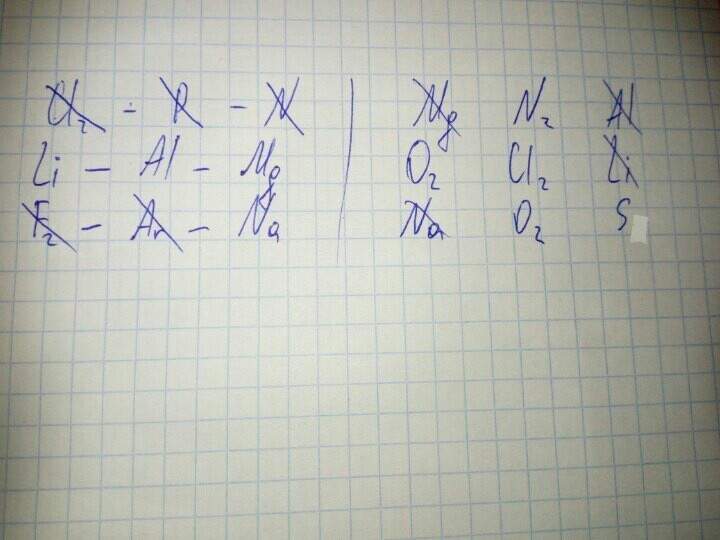 Cl₂ - P - N | Mg N₂ Al
Li - Al - Mg | O₂ Cl₂ Li
F₂ - Ar - Na | Na O₂ S